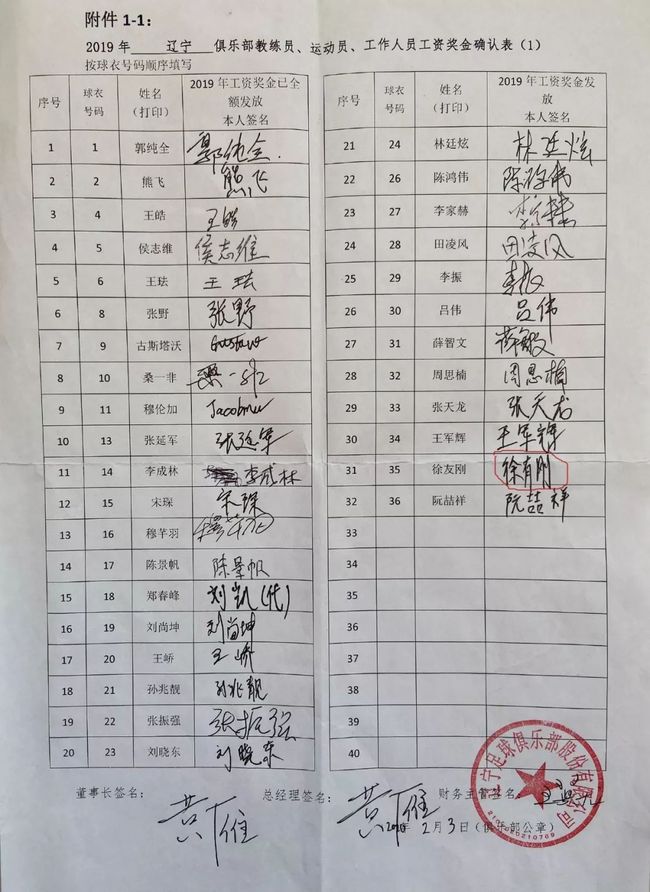 附件 1-1：
2019 年 辽宁 俱乐部教练员、运动员、工作人员工资奖金确认表（1）
按球衣号码顺序填写
序号 球衣号码 姓名（打印） 2019 年工资奖金已全额发放 本人签名
1 1 郭纯全 郭纯全
2 2 熊飞 熊飞
3 4 王皓 王皓
4 5 侯志维 侯志维
5 6 王珐 王珐
6 8 张野 张野
7 9 古斯塔沃 Gustavo
8 10 桑一非 桑一非
9 11 穆伦加
10 13 张延军 张延军
11 14 李成林 李成林
12 15 宋琛 宋琛
13 16 穆芊羽
14 17 陈景帆 陈景帆
15 18 郑春峰 刘凯(代)
16 19 刘尚坤 刘尚坤
17 20 王峤 王峤
18 21 孙兆靓 孙兆靓
19 22 张振强 张振强
20 23 刘晓东 刘晓东
序号 球衣号码 姓名（打印） 2019 年工资奖金发放 本人签名
21 24 林廷炫 林廷炫
22 26 陈鸿伟 陈鸿伟
23 27 李家赫
24 28 田凌风 田凌风
25 29 李振 李振
26 30 吕伟 吕伟
27 31 薛智文
28 32 周思楠 周思楠
29 33 张天龙 张天龙
30 34 王军辉 王军辉
31 35 徐友刚 徐有刚
32 36 阮喆祥 阮喆祥
33
34
35
36
37
38
39
40
董事长签名： 黄雁 总经理签名： 黄雁 财务主管签名：
2020年 2月3日（俱乐部公章）
辽宁足球俱乐部股份有限公司